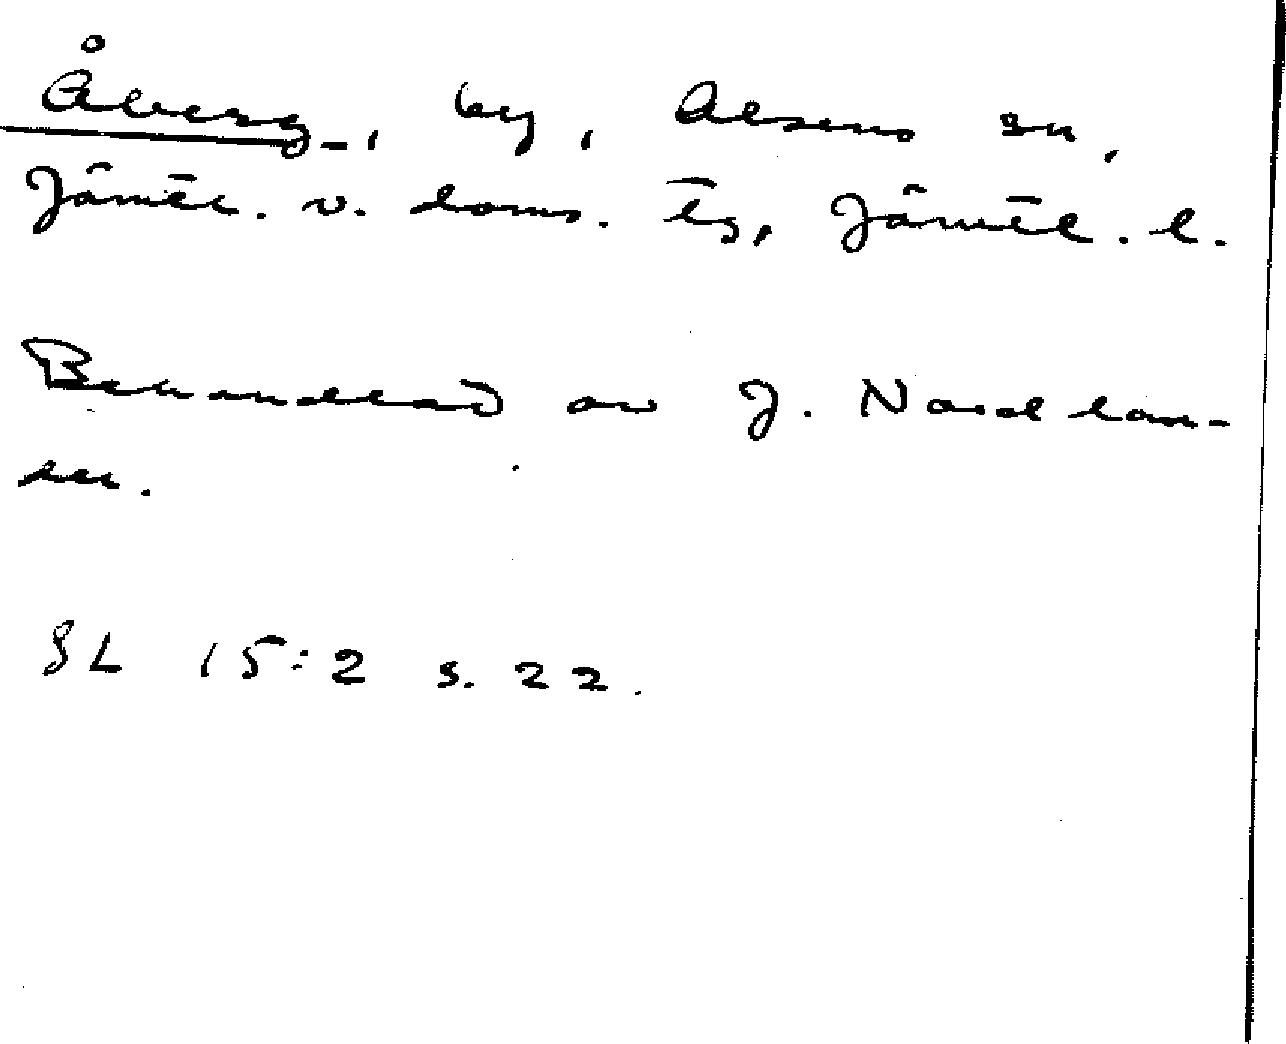 Åberg, by, Alsens sn,
Jämtl. v. doms. tg, Jämtl. l.
Behandlad av J. Nordlan-
der.
SL 15:2 s. 22.